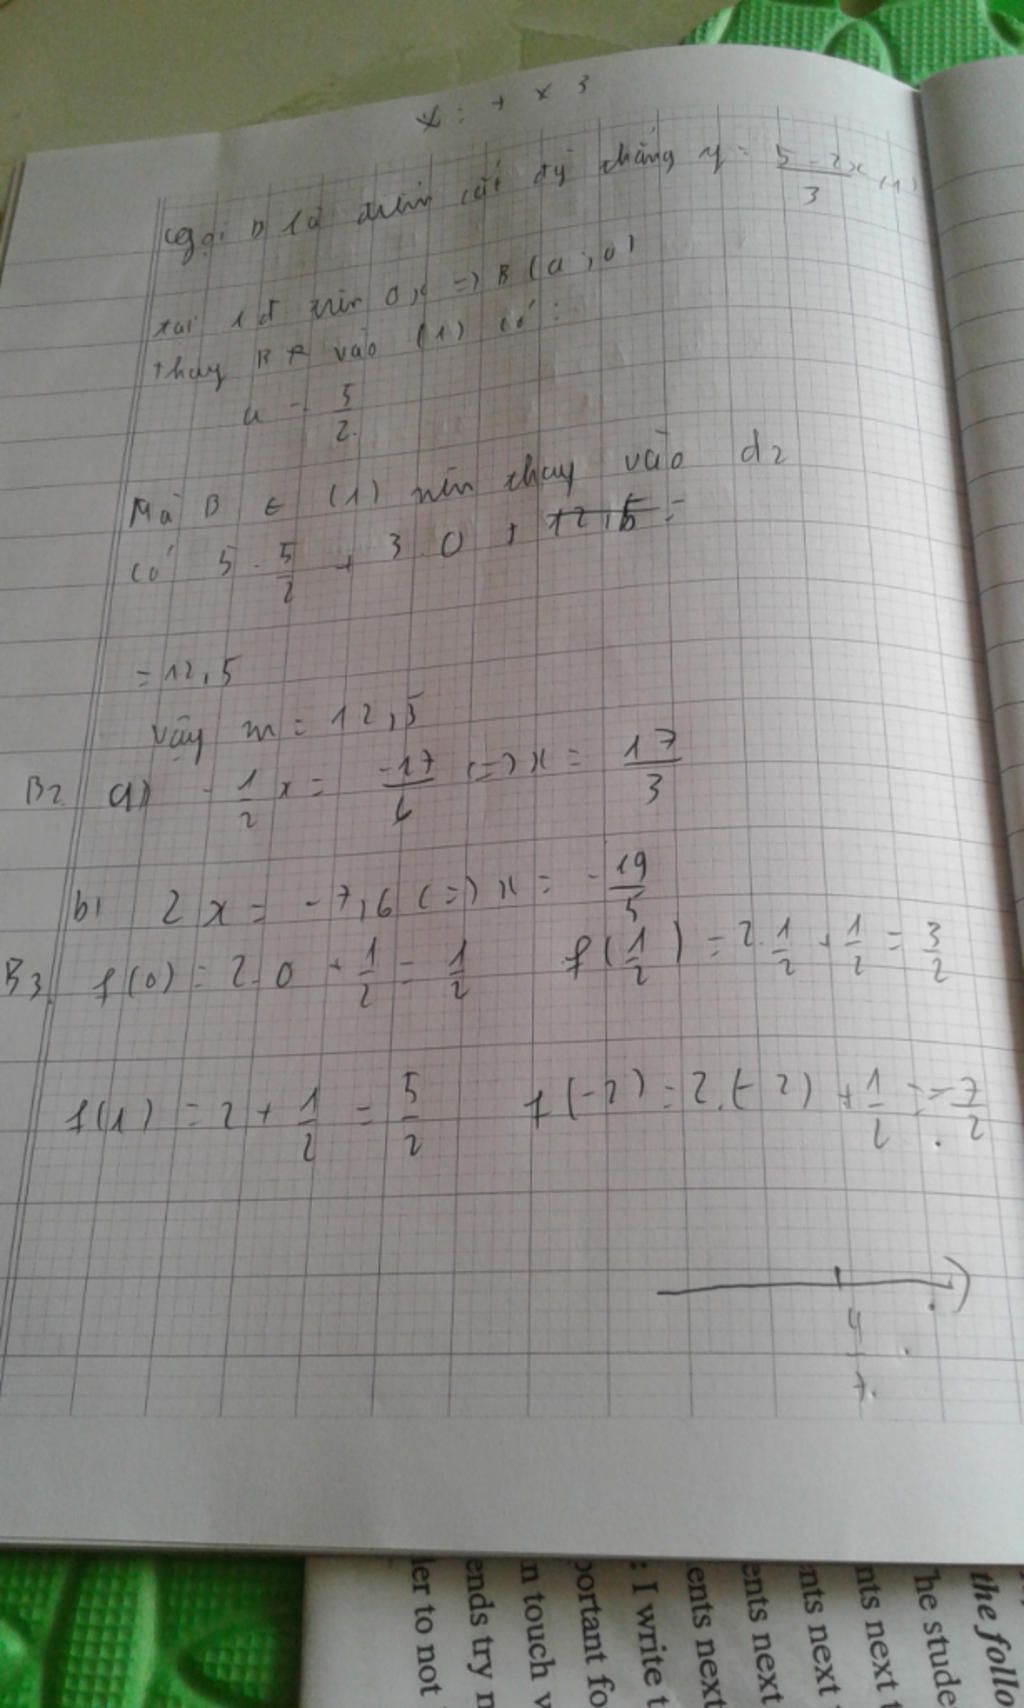 x : + x 3
Gọi B là điểm cắt đg thẳng y = \frac{5-2x}{3} (1)
tại 1 đ trên 0x => B (a ; 0)
thay B vào (1) có :
a = \frac{5}{2}
Mà B ∈ (1) nên thay vào d2
có 5 . \frac{5}{2} + 3 . 0 + 12,5 =
= 12,5
Vậy m = 12,5
B2 a) - \frac{1}{2} x = \frac{-17}{6} (=) x = \frac{17}{3}
b) 2x = -7,6 (=) x = - \frac{19}{5}
B3 f(0) = 2.0 + \frac{1}{2} = \frac{1}{2} f(\frac{1}{2}) = 2.\frac{1}{2} + \frac{1}{2} = \frac{3}{2}
f(1) = 2 + \frac{1}{2} = \frac{5}{2} f(-2) = 2.(-2) + \frac{1}{2} = -\frac{7}{2}
4
7
the follo
he stude
nts next t
nts next
ents next
ents next
: I write t
portant fo
n touch v
ends try n
ler to not